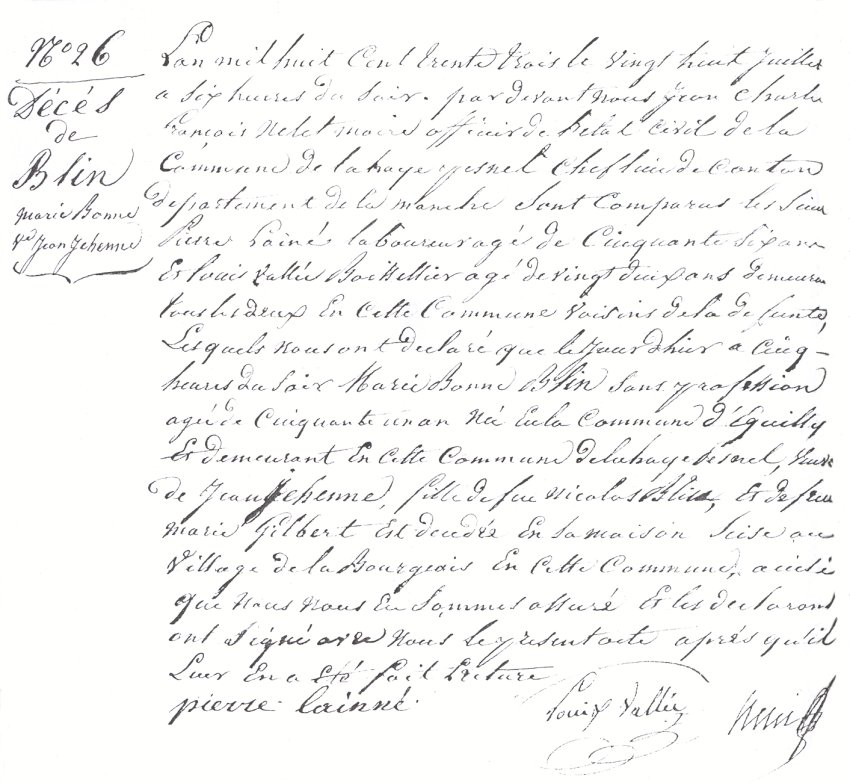 No 26
Décès
de
Blin
marie Bonne
Ve Jean Jehenne
L'an mil huit Cent trente trois le vingt huit Juillet
a six heures du Soir. par devant nous Jean Charles
françois Nelet maire officier de l'etat Civil de la
Commune de la haye pesnel Chef lieu de Canton
departement de la manche Sont Comparus les Sieurs
Pierre Lainé laboureur agé de Cinquante Six ans
Et Louis Vallée Boissellier agé de vingt deux ans demeurant
tous les deux En Cette Commune Voisins de la defunte,
Lesquels nous ont declaré que le Jour d'hier a Cinq
heures du Soir Marie Bonne Blin Sans profession
agée de Cinquante un an Né En la Commune d'Equilly
Et demeurant En Cette Commune de la haye pesnel, Veuve
de Jean Jehenne, fille de feu Nicolas Blin, Et de feue
marie Gilbert Est decedée En sa maison Seise au
Village de la Bourgeais En Cette Commune, ainsi
que Nous Nous En Sommes assuré Et les declarans
ont Signé avec Nous le present acte après qu'il
Leur En a Eté fait Lecture
pierre lainné
Louis Vallée